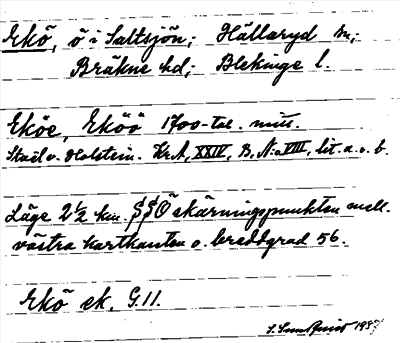 Ekö, ö i Saltsjön; Hällaryd sn;
Bräkne hd; Blekinge l.
Eköe, Eköö 1700-tal. miss.
Staël v. Holstein. Kr.A, XXIV, B, N:o VIII, lit. a. o. b.
Läge 2½ km. SSÖ skärningspunkten mell.
västra kartkanten o. breddgrad 56.
Ekö ek. G.11.
S. Sundquist